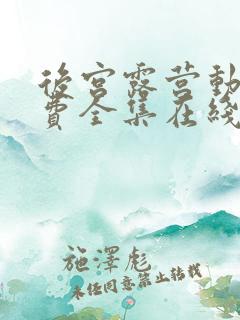 後宮露营動
費全集在綫
施澤彪
未经同意禁止转载